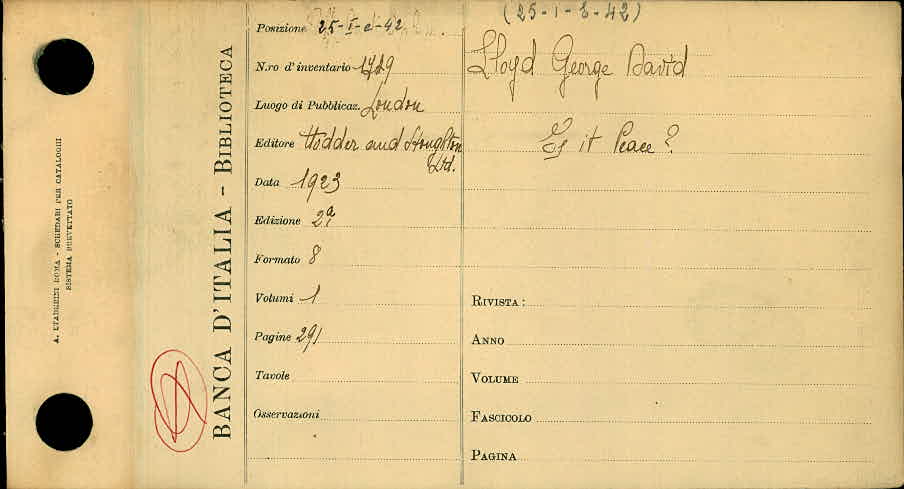 (25-I-e-42)
Posizione 25-I-e-42
Lloyd George David
N.ro d'inventario 1729
Luogo di Pubblicaz. London
Editore Hodder and Stoughton
Ltd.
Is it Peace?
Data 1923
Edizione 2ª
Formato 8
Volumi 1
Pagine 291
Tavole
Osservazioni
RIVISTA:
ANNO
VOLUME
FASCICOLO
PAGINA
BANCA D'ITALIA - BIBLIOTECA
A. STADERINI ROMA - SCHEDARI PER CATALOGHI
SISTEMA BREVETTATO